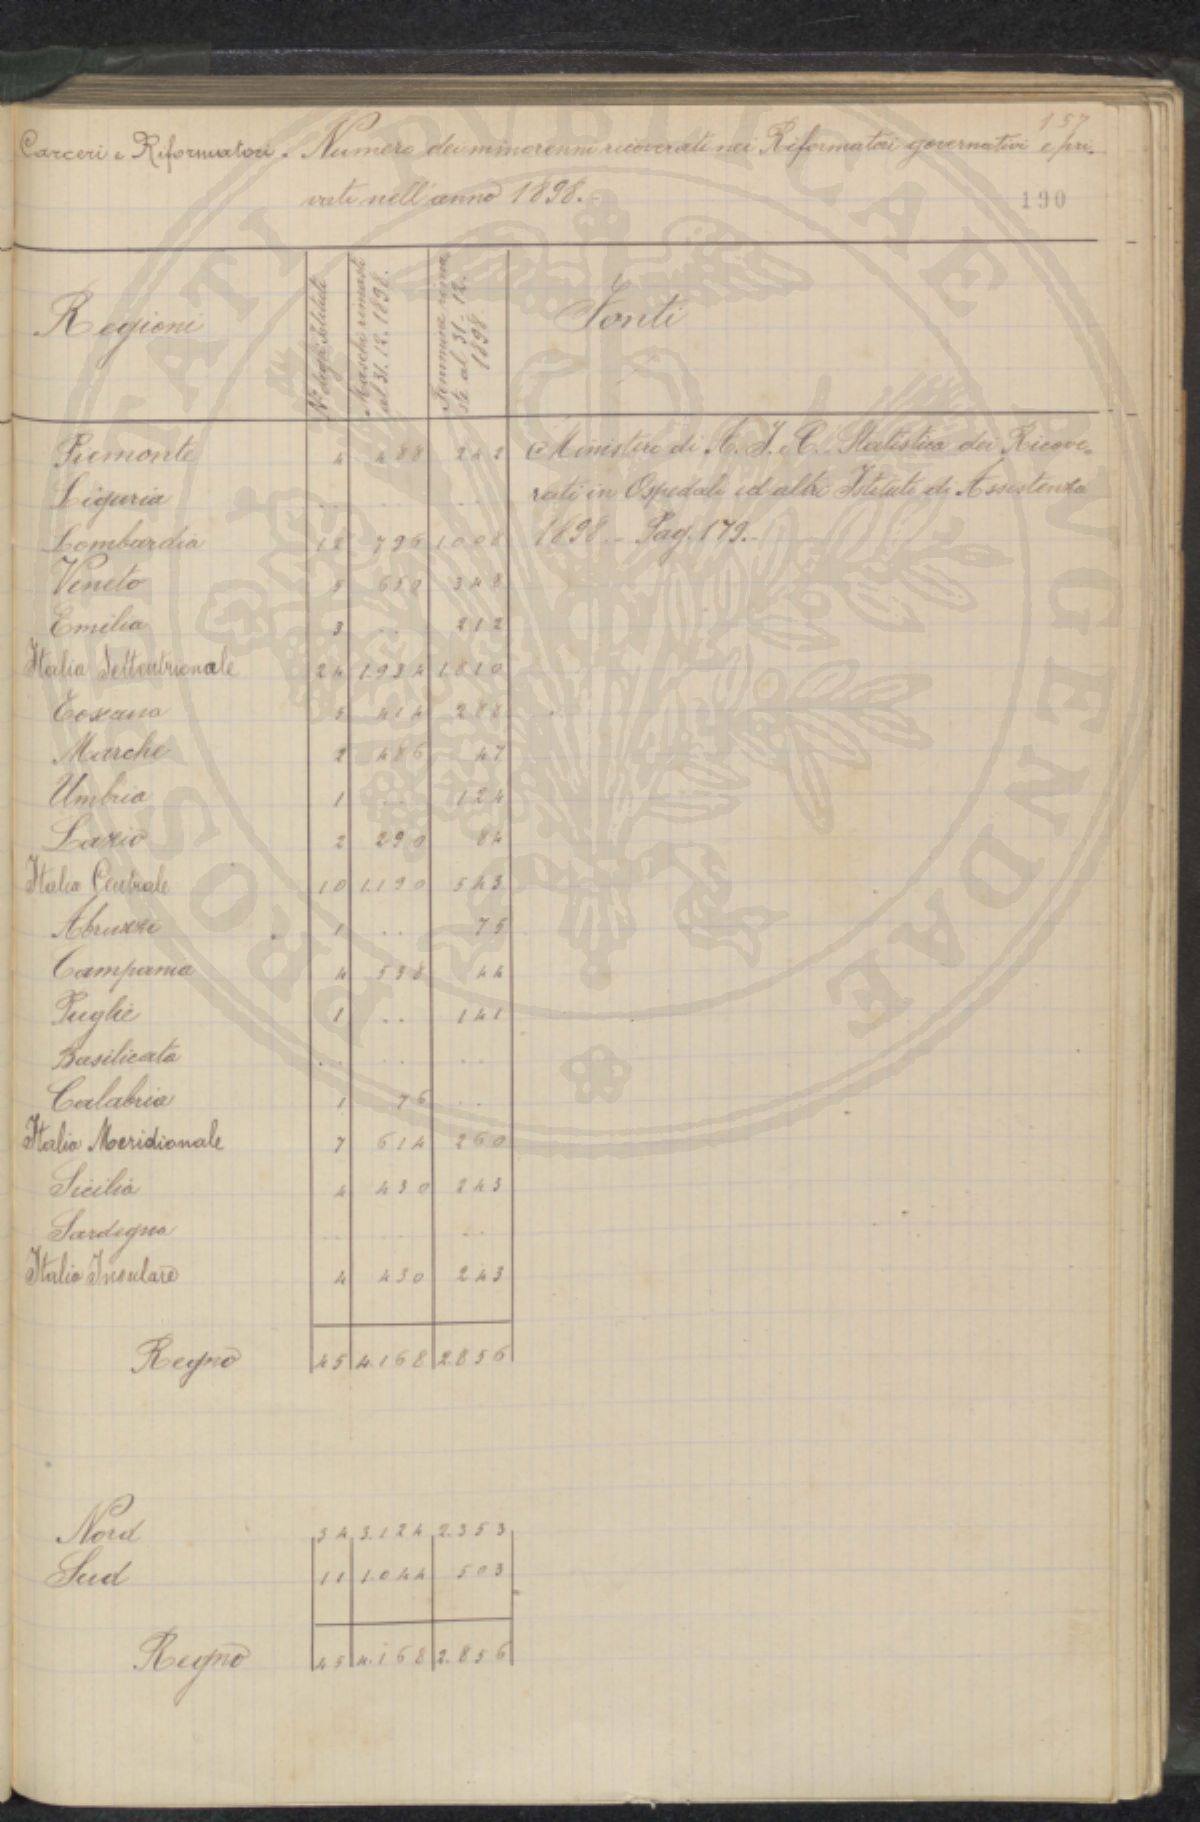 157
Carceri e Riformatori. Numero dei minorenni ricoverati nei Riformatori governativi e pri-
vati nell'anno 1898.-
190
Regioni | N° degli Istituti | Maschi rimasti al 31.12.1898. | Femmine rimaste al 31-12. 1898 | Fonti
Piemonte 4 488 242 Ministero di A. I. e C. Statistica dei Ricove-
Liguria .. .. .. rati in Ospedali ed altri Istituti di Assistenza
Lombardia 12 796 1008 1898.- Pag. 179.-
Veneto 5 650 348
Emilia 3 .. 212
Italia Settentrionale 24 1.934 1.810
Toscana 5 414 288
Marche 2 486 47
Umbria 1 .. 124
Lazio 2 290 84
Italia Centrale 10 1.190 543
Abruzzi 1 .. 75
Campania 4 538 44
Puglie 1 .. 141
Basilicata .. .. ..
Calabria 1 76 ..
Italia Meridionale 7 614 260
Sicilia 4 430 243
Sardegna .. .. ..
Italia Insulare 4 430 243
Regno 45 4.168 2.856
Nord 34 3.124 2.353
Sud 11 1.044 503
Regno 45 4.168 2.856
PROSPERITATI PUBLICAE AUGENDAE